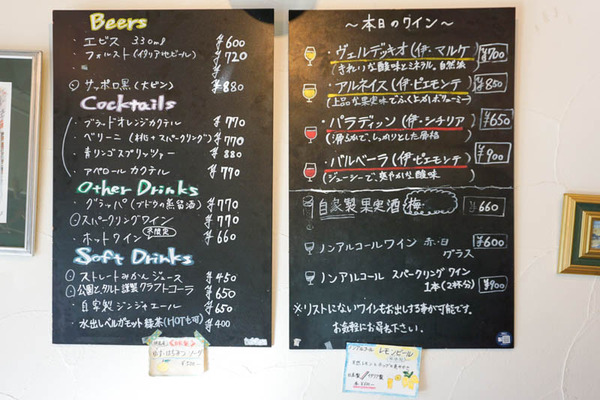 Beers
・エビス 330ml ¥600
・フォルスト(イタリア地ビール) ¥720
・サッポロ黒(大ビン) ¥880
Cocktails
・ブラッドオレンジカクテル ¥770
・ベリーニ(桃+スパークリング) ¥770
・青リンゴスプリッツァー ¥880
・アペロールカクテル ¥770
Other Drinks
・グラッパ(ブドウの蒸留酒) ¥770
・スパークリングワイン ¥770
・ホットワイン 冬限定 ¥660
Soft Drinks
・ストレートみかんジュース ¥450
・公園と、タルト謹製クラフトコーラ ¥650
・自家製ジンジャエール ¥650
・水出しベルガモット緑茶(HOTも可) ¥400
〜本日のワイン〜
・ヴェルデッキオ(伊・マルケ) ¥700
(きれいな酸味とミネラル、自然派
・アルネイス(伊・ピエモンテ) ¥850
(上品な果実味でふくよかなボリューミー)
・パラディッソ(伊・シチリア) ¥650
(滑らかで、しっかりとした骨格
・バルベーラ(伊・ピエモンテ) ¥900
(ジューシーで、爽やかな酸味
自家製果実酒(梅 ¥660
ノンアルコールワイン 赤・白 ¥600
グラス
ノンアルコール スパークリングワイン
1本(2杯分) ¥900
※リストにないワインもお出しする事が可能です。
お気軽にお尋ね下さい。
ノンアルコール レモンビール